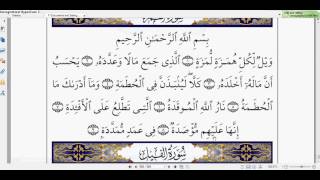 بِسْمِ اللَّهِ الرَّحْمَٰنِ الرَّحِيمِ
وَيْلٌ لِّكُلِّ هُمَزَةٍ لُّمَزَةٍ ۝ الَّذِي جَمَعَ مَالًا وَعَدَّدَهُ ۝ يَحْسَبُ
أَنَّ مَالَهُ أَخْلَدَهُ ۝ كَلَّا لَيُنبَذَنَّ فِي الْحُطَمَةِ ۝ وَمَا أَدْرَاكَ مَا
الْحُطَمَةُ ۝ نَارُ اللَّهِ الْمُوقَدَةُ ۝ الَّتِي تَطَّلِعُ عَلَى الْأَفْئِدَةِ ۝
إِنَّهَا عَلَيْهِم مُّؤْصَدَةٌ ۝ فِي عَمَدٍ مُّمَدَّدَةٍ ۝
سُورَةُ الْفِيلِ